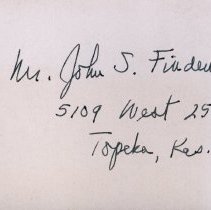 Mr. John S. Finden
5109 West 25
Topeka, Kas.